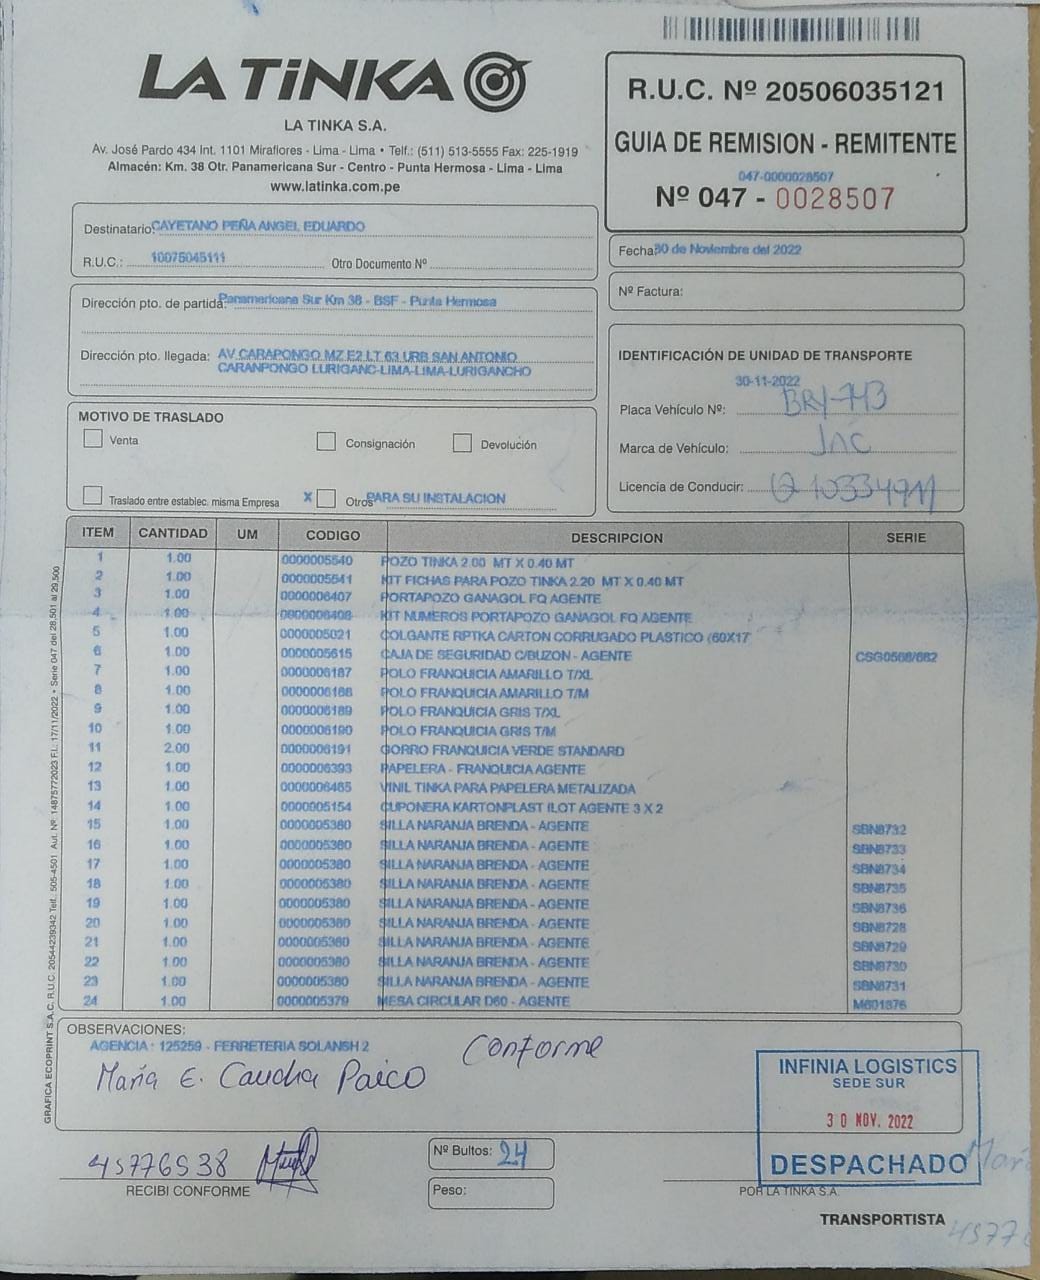 LA TiNKA
LA TINKA S.A.
Av. José Pardo 434 Int. 1101 Miraflores - Lima - Lima • Telf.: (511) 513-5555 Fax: 225-1919
Almacén: Km. 38 Otr. Panamericana Sur - Centro - Punta Hermosa - Lima - Lima
www.latinka.com.pe
R.U.C. Nº 20506035121
GUIA DE REMISION - REMITENTE
047-0000028507
Nº 047 - 0028507
Destinatario: CAYETANO PEÑA ANGEL EDUARDO
R.U.C.: 10075045111 Otro Documento Nº
Fecha: 30 de Noviembre del 2022
Nº Factura:
Dirección pto. de partida: Panamericana Sur Km 38 - BSF - Punta Hermosa
Dirección pto. llegada: AV CARAPONGO MZ E2 LT 63 URB SAN ANTONIO
CARANPONGO LURIGANC-LIMA-LIMA-LURIGANCHO
IDENTIFICACIÓN DE UNIDAD DE TRANSPORTE
30-11-2022
Placa Vehículo Nº: BRY-743
Marca de Vehículo: JAC
Licencia de Conducir: Q10334911
MOTIVO DE TRASLADO
Venta Consignación Devolución
Traslado entre establec. misma Empresa X Otros PARA SU INSTALACION
ITEM CANTIDAD UM CODIGO DESCRIPCION SERIE
1 1.00 0000005540 POZO TINKA 2.00 MT X 0.40 MT
2 1.00 0000005541 KIT FICHAS PARA POZO TINKA 2.20 MT X 0.40 MT
3 1.00 0000006407 PORTAPOZO GANAGOL FQ AGENTE
4 1.00 0000006408 KIT NUMEROS PORTAPOZO GANAGOL FQ AGENTE
5 1.00 0000005021 COLGANTE RPTKA CARTON CORRUGADO PLASTICO (60X17
6 1.00 0000005615 CAJA DE SEGURIDAD C/BUZON - AGENTE CSG0568/682
7 1.00 0000006187 POLO FRANQUICIA AMARILLO T/XL
8 1.00 0000006188 POLO FRANQUICIA AMARILLO T/M
9 1.00 0000006189 POLO FRANQUICIA GRIS T/XL
10 1.00 0000006190 POLO FRANQUICIA GRIS T/M
11 2.00 0000006191 GORRO FRANQUICIA VERDE STANDARD
12 1.00 0000006393 PAPELERA - FRANQUICIA AGENTE
13 1.00 0000006465 VINIL TINKA PARA PAPELERA METALIZADA
14 1.00 0000005154 CUPONERA KARTONPLAST ILOT AGENTE 3 X 2
15 1.00 0000005380 SILLA NARANJA BRENDA - AGENTE SBN8732
16 1.00 0000005380 SILLA NARANJA BRENDA - AGENTE SBN8733
17 1.00 0000005380 SILLA NARANJA BRENDA - AGENTE SBN8734
18 1.00 0000005380 SILLA NARANJA BRENDA - AGENTE SBN8735
19 1.00 0000005380 SILLA NARANJA BRENDA - AGENTE SBN8736
20 1.00 0000005380 SILLA NARANJA BRENDA - AGENTE SBN8728
21 1.00 0000005380 SILLA NARANJA BRENDA - AGENTE SBN8729
22 1.00 0000005380 SILLA NARANJA BRENDA - AGENTE SBN8730
23 1.00 0000005380 SILLA NARANJA BRENDA - AGENTE SBN8731
24 1.00 0000005379 MESA CIRCULAR D60 - AGENTE M601376
GRAFICA ECOPRINT S.A.C. R.U.C. 20544239342 Telf.: 505-4501 Aut. Nº. 14875772023 F.I.: 17/11/2022 • Serie 047 del 28,501 al 29,500
OBSERVACIONES:
AGENCIA : 125259 - FERRETERIA SOLANSH 2
Conforme
María E. Caucha Paico
INFINIA LOGISTICS
SEDE SUR
30 NOV. 2022
DESPACHADO
45776538
RECIBI CONFORME
Nº Bultos: 24
Peso:
POR LA TINKA S.A.
TRANSPORTISTA